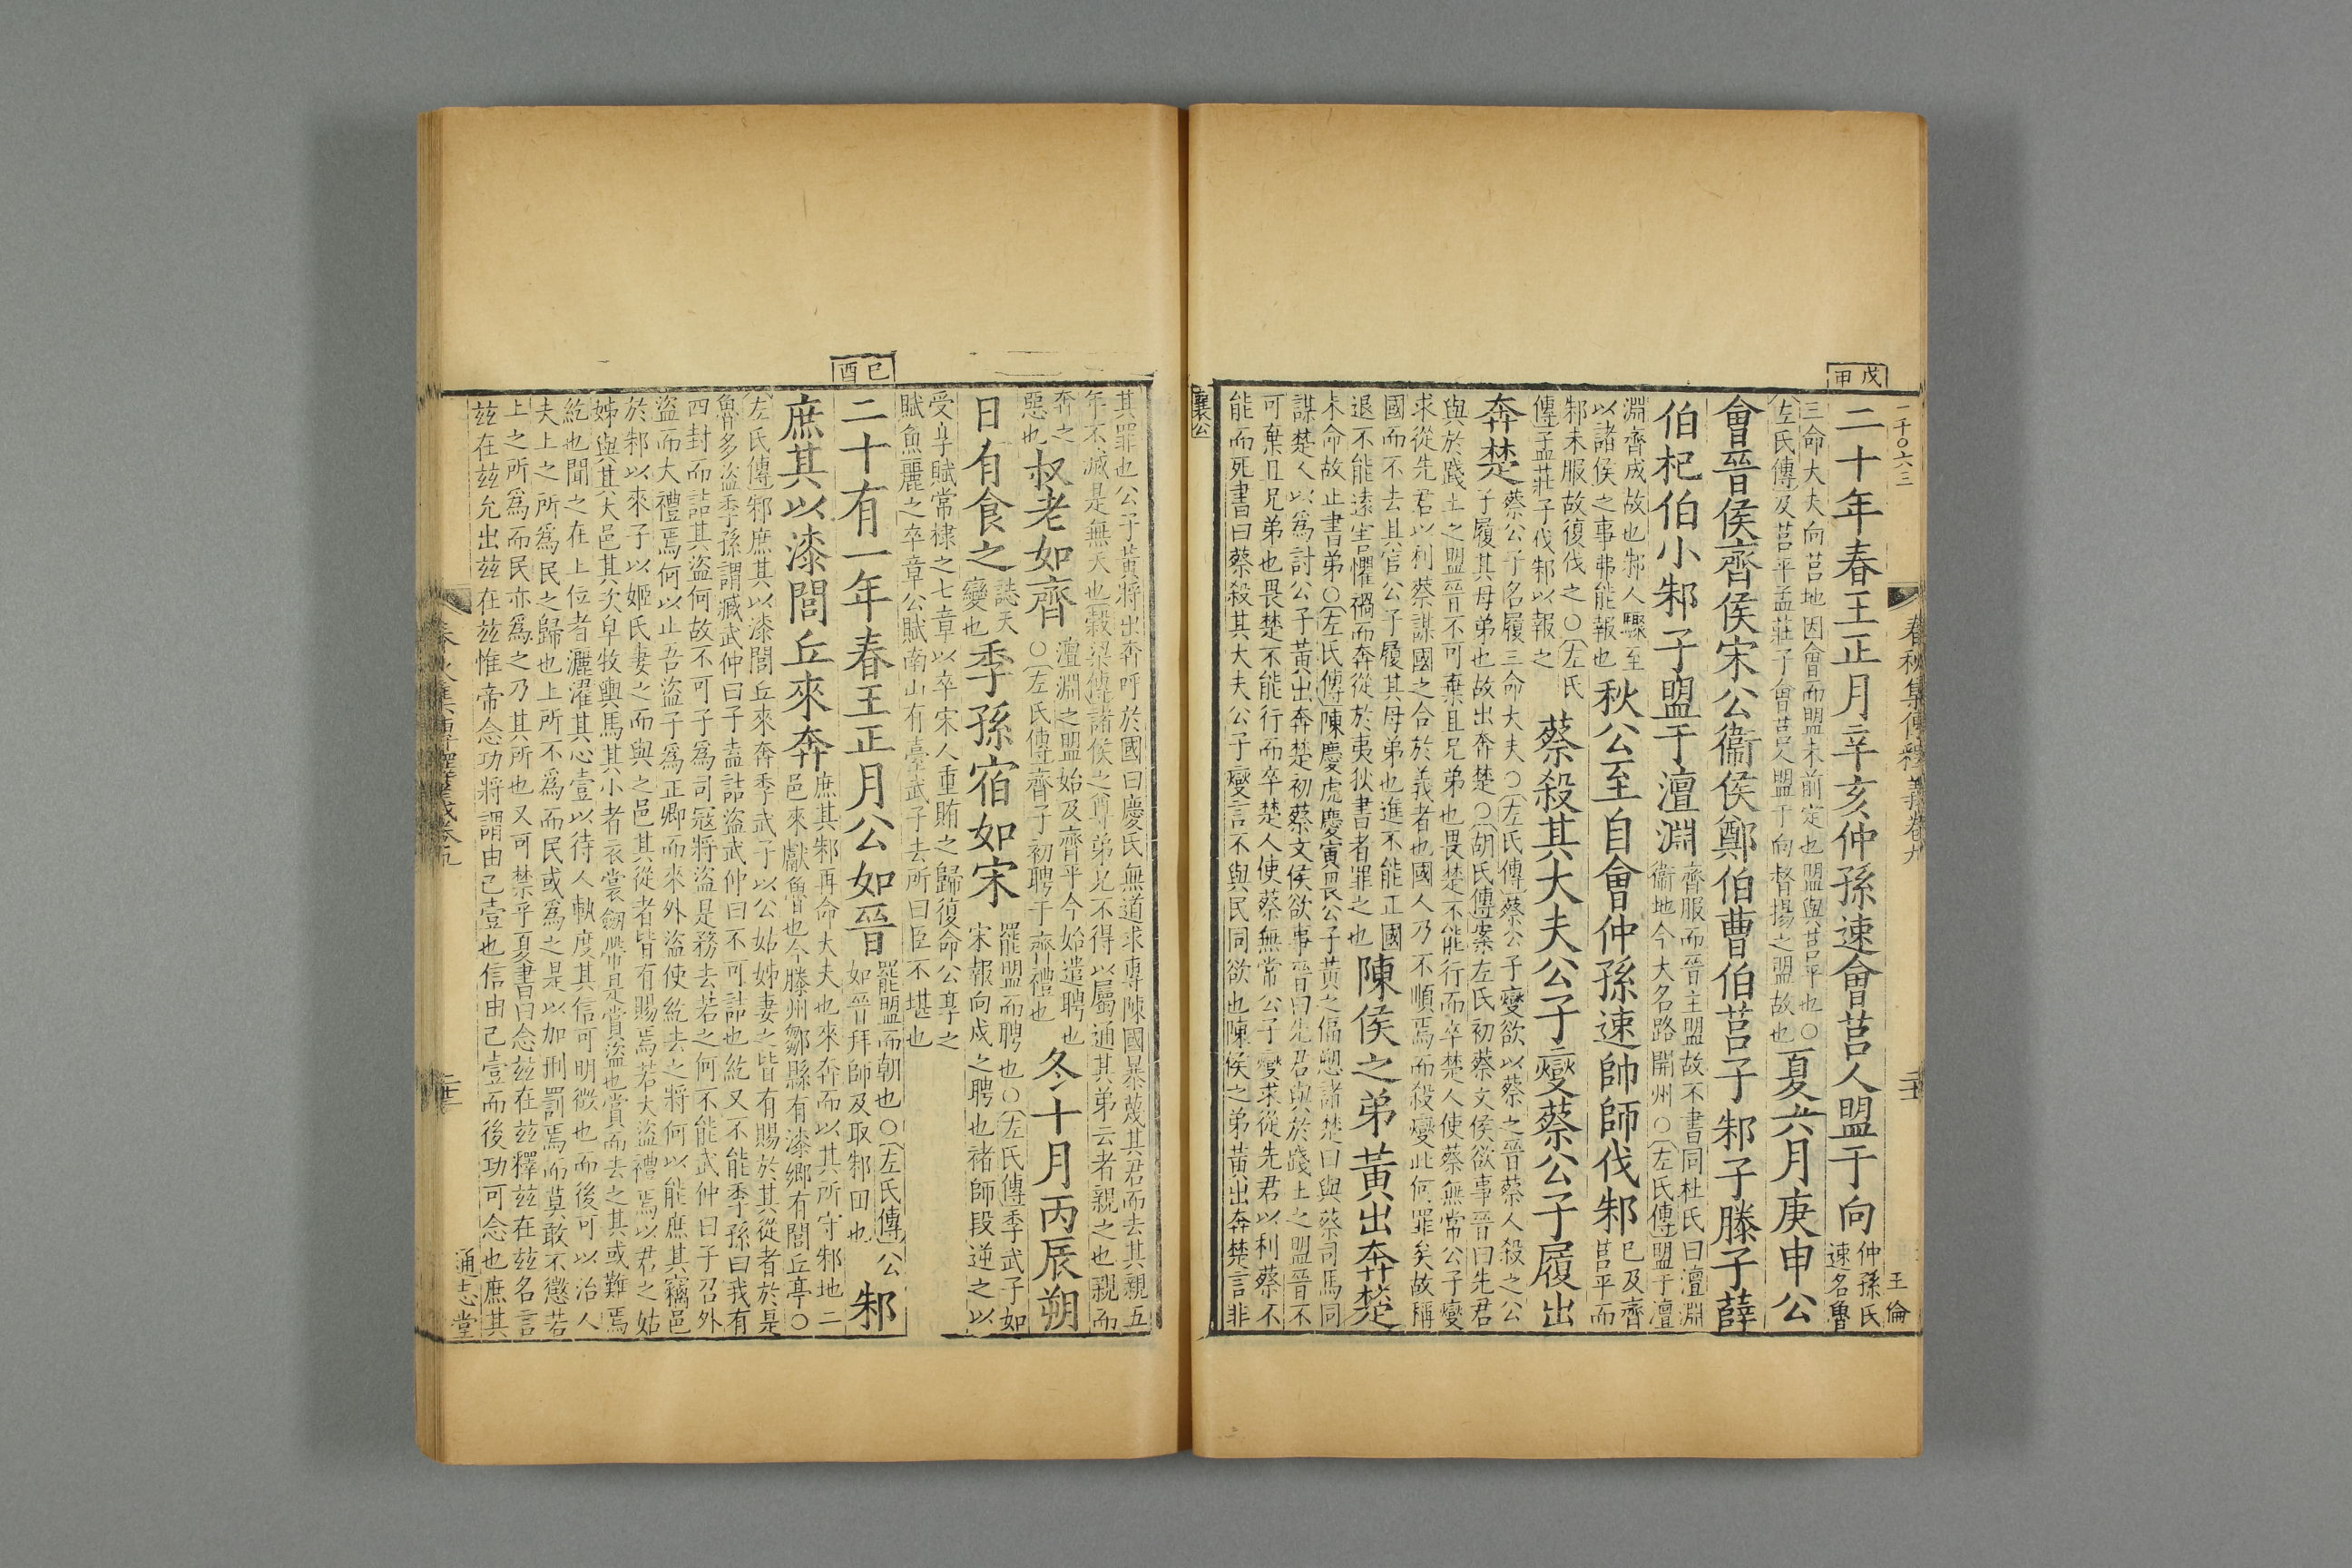 戊申
一千〇六三
春秋集傳釋義卷九
王倫
二十年春王正月辛亥仲孫速會莒人盟于向仲孫氏
速名魯
三命大夫向莒地因會而盟未前定也盟與莒平也〇
左氏傳及莒平孟莊子會莒人盟于向督揚之盟故也夏六月庚申公
會晉侯齊侯宋公衞侯鄭伯曹伯莒子邾子滕子薛
伯杞伯小邾子盟于澶淵齊服而晉主盟故不書同杜氏曰澶淵
衞地今大名路開州〇左氏傳盟于澶
淵齊成故也邾人驟至
以諸侯之事弗能報也秋公至自會仲孫速帥師伐邾已及齊
莒平而
邾未服故復伐之〇左氏
傳孟莊子伐邾以報之蔡殺其大夫公子燮蔡公子履出
奔楚蔡公子名履三命大夫〇左氏傳蔡公子燮欲以蔡之晉蔡人殺之公
子履其母弟也故出奔楚〇胡氏傳案左氏初蔡文侯欲事晉曰先君
與於踐土之盟晉不可棄且兄弟也畏楚不能行而卒楚人使蔡無常公子燮
求從先君以利蔡謀國之合於義者也國人乃不順焉而殺燮此何罪矣故稱
國而不去其官公子履其母弟也進不能正國
退不能遠害懼禍而奔從於夷狄書者罪之也陳侯之弟黃出奔楚
未命故止書弟〇左氏傳陳慶虎慶寅畏公子黃之偪愬諸楚曰與蔡司馬同
謀楚人以爲討公子黃出奔楚初蔡文侯欲事晉曰先君與於踐土之盟晉不
可棄且兄弟也畏楚不能行而卒楚人使蔡無常公子燮求從先君以利蔡不
能而死書曰蔡殺其大夫公子燮言不與民同欲也陳侯之弟黃出奔楚言非
襄公
其罪也公子黃將出奔呼於國曰慶氏無道求專陳國暴蔑其君而去其親五
年不滅是無天也穀梁傳諸侯之尊弟兄不得以屬通其弟云者親之也親而
奔之
惡也叔老如齊澶淵之盟始及齊平今始遣聘也
〇左氏傳齊子初聘于齊禮也冬十月丙辰朔
日有食之誌天
變也季孫宿如宋罷盟而聘也〇左氏傳季武子如
宋報向戌之聘也褚師段逆之以
受享賦常棣之七章以卒宋人重賄之歸復命公享之
賦魚麗之卒章公賦南山有臺武子去所曰臣不堪也
己酉
二十有一年春王正月公如晉罷盟而朝也〇左氏傳公
如晉拜師及取邾田也邾
庶其以漆閭丘來奔庶其邾再命大夫也來奔而以其所守邾地二
邑來獻魯也今滕州鄒縣有漆鄉有閭丘亭〇
左氏傳邾庶其以漆閭丘來奔季武子以公姑姊妻之皆有賜於其從者於是
魯多盜季孫謂臧武仲曰子盍詰盜武仲曰不可詰也紇又不能季孫曰我有
四封而詰其盜何故不可子爲司寇將盜是務去若之何不能武仲曰子召外
盜而大禮焉何以止吾盜子爲正卿而來外盜使紇去之將何以能庶其竊邑
於邾以來子以姬氏妻之而與之邑其從者皆有賜焉若大盜禮焉以君之姑
姊與其大邑其次皁牧輿馬其小者衣裳劒帶是賞盜也賞而去之其或難焉
紇也聞之在上位者灑濯其心壹以待人軌度其信可明徵也而後可以治人
夫上之所爲民之歸也上所不爲而民或爲之是以加刑罰焉而莫敢不懲若
上之所爲而民亦爲之乃其所也又可禁乎夏書曰念茲在茲釋茲在茲名言
茲在茲允出茲在茲惟帝念功將謂由己壹也信由己壹而後功可念也庶其
通志堂